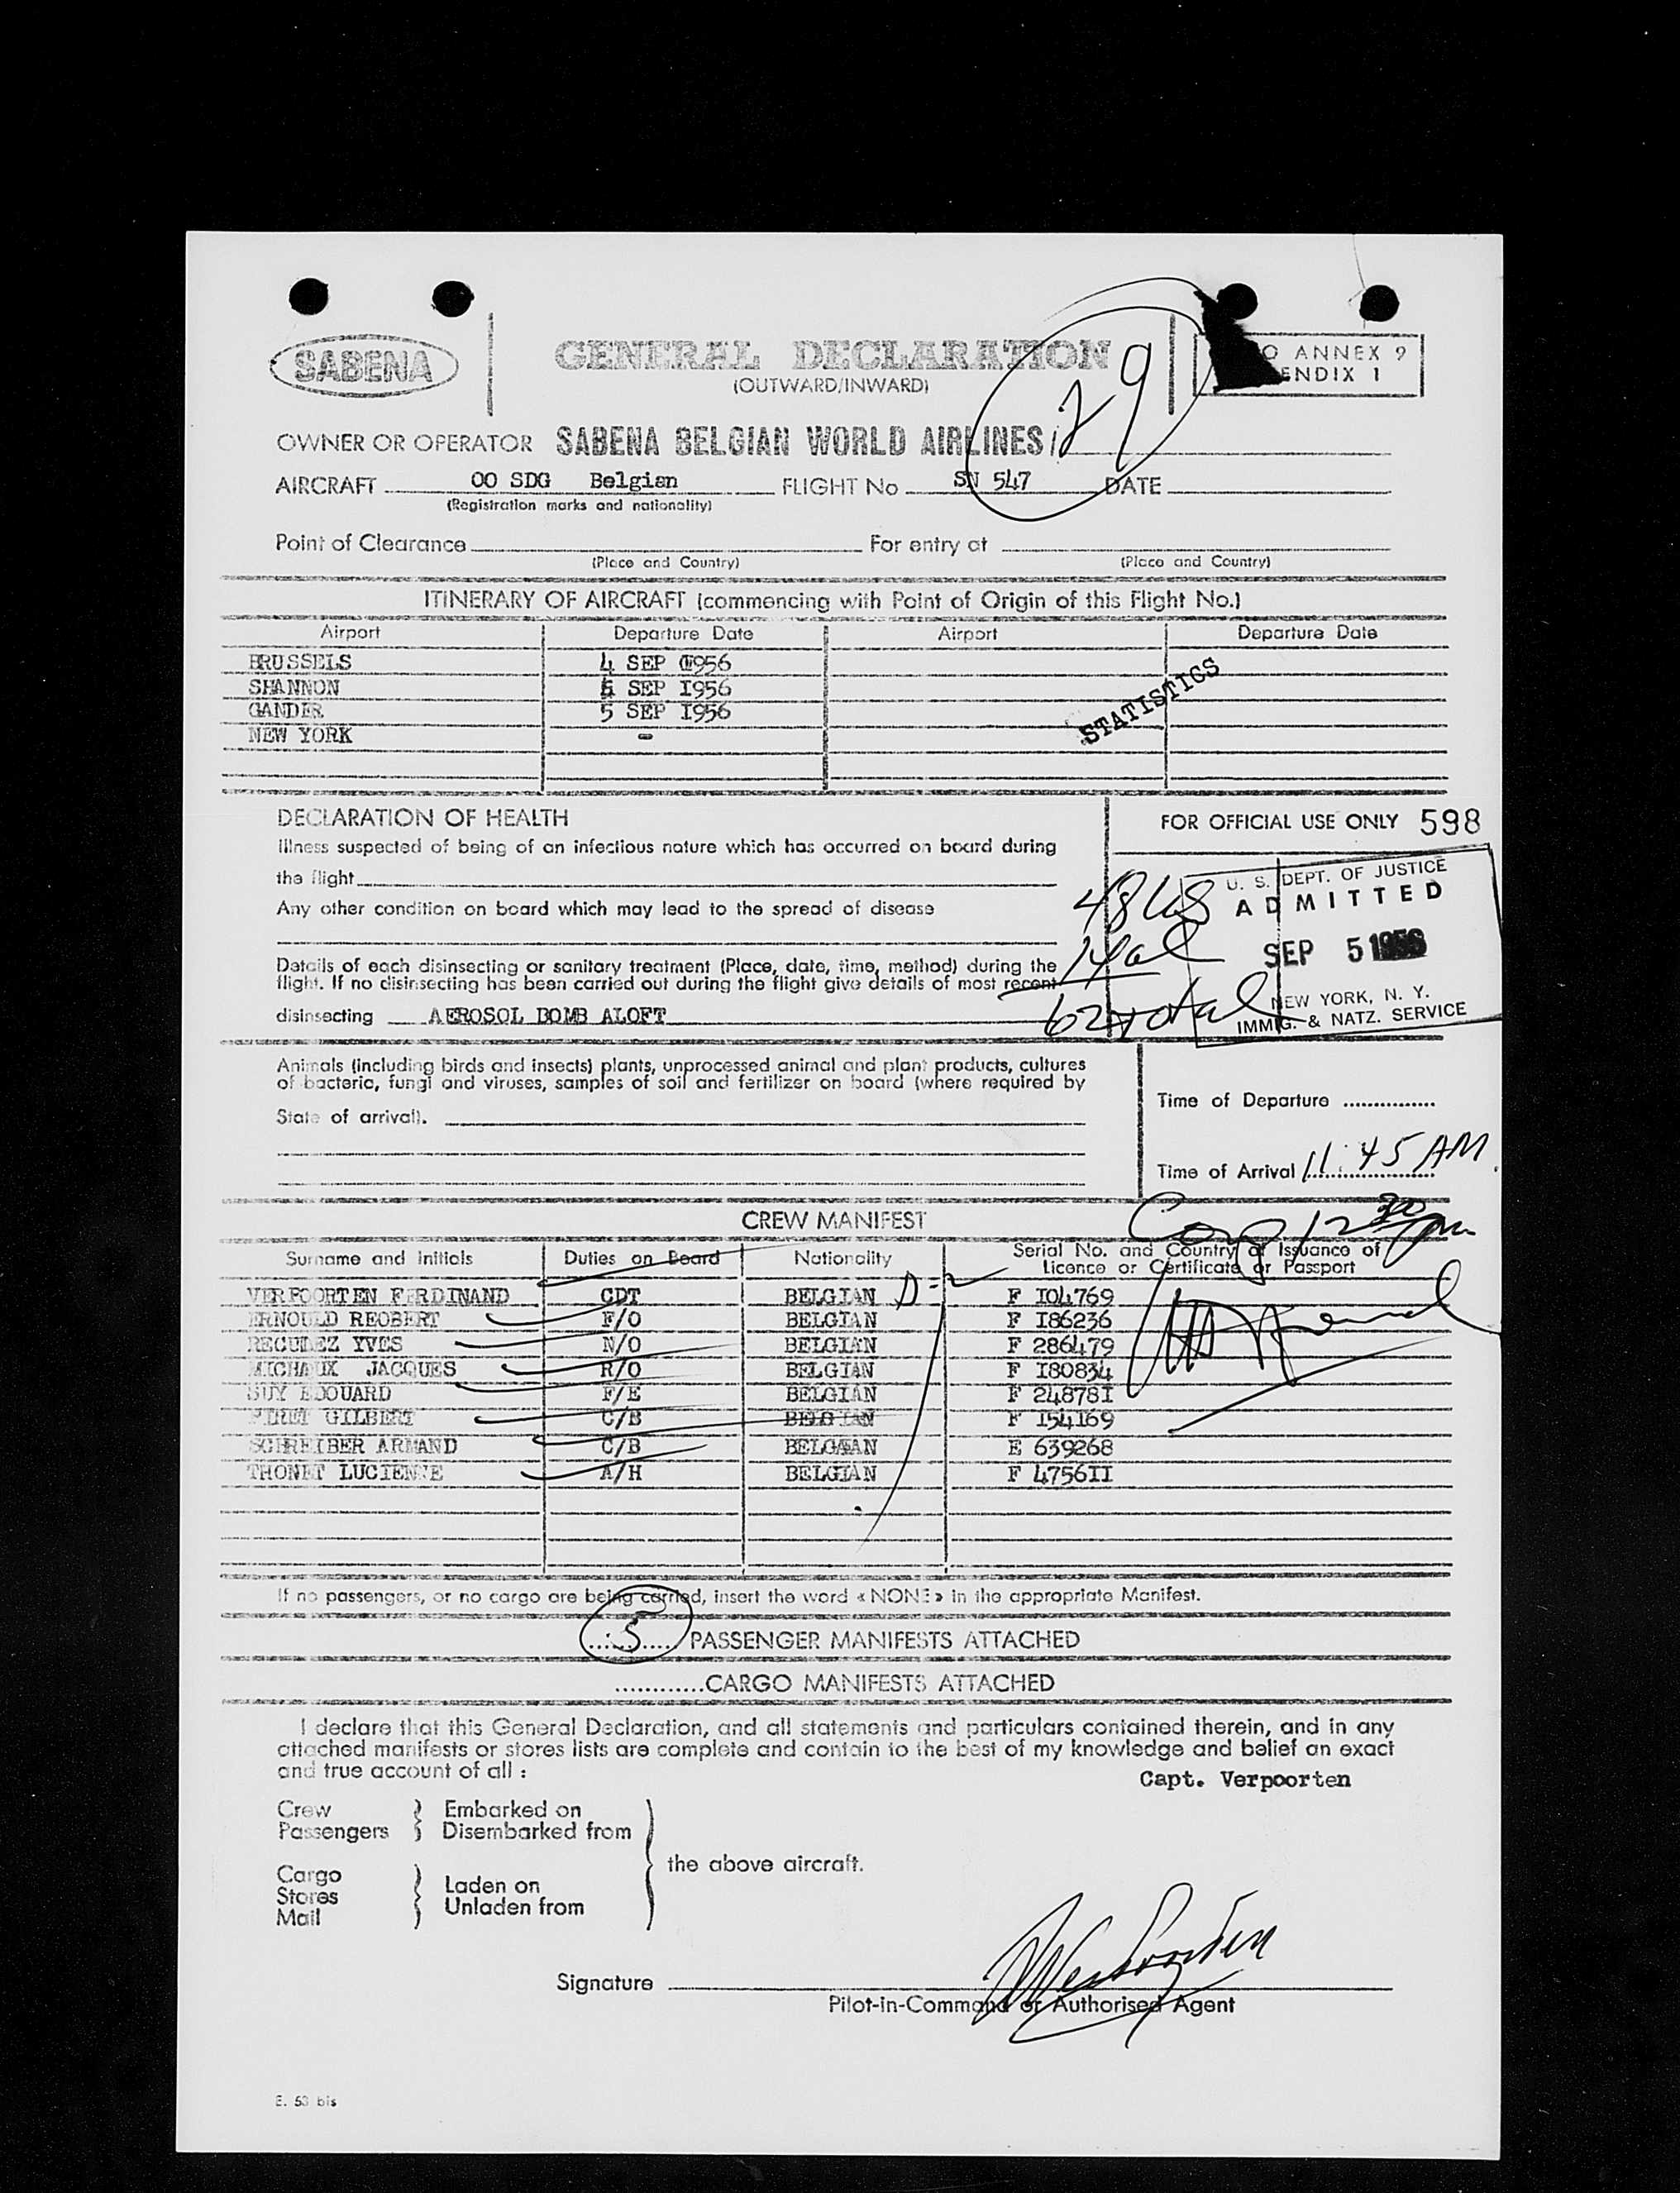 SABENA
GENERAL DECLARATION
(OUTWARD/INWARD)
29
O ANNEX 9
ENDIX 1
OWNER OR OPERATOR SABENA BELGIAN WORLD AIRLINES
AIRCRAFT OO SDG Belgian FLIGHT No SN 547 DATE
(Registration marks and nationality)
Point of Clearance For entry at
(Place and Country) (Place and Country)
ITINERARY OF AIRCRAFT (commencing with Point of Origin of this Flight No.)
Airport Departure Date Airport Departure Date
BRUSSELS 4 SEP 1956
SHANNON 5 SEP I956
GANDER 5 SEP I956
NEW YORK -
STATISTICS
DECLARATION OF HEALTH
Illness suspected of being of an infectious nature which has occurred on board during
the flight
Any other condition on board which may lead to the spread of disease
Details of each disinsecting or sanitary treatment (Place, date, time, method) during the
flight. If no disinsecting has been carried out during the flight give details of most recent
disinsecting AEROSOL BOMB ALOFT
FOR OFFICIAL USE ONLY 598
48 US
14 al
62 total
U. S. DEPT. OF JUSTICE
ADMITTED
SEP 5 1956
NEW YORK, N. Y.
IMMIG. & NATZ. SERVICE
Animals (including birds and insects) plants, unprocessed animal and plant products, cultures
of bacteria, fungi and viruses, samples of soil and fertilizer on board (where required by
State of arrival).
Time of Departure
Time of Arrival 11:45 AM
CREW MANIFEST
12 30 pm
Surname and Initials Duties on Board Nationality Serial No. and Country of Issuance of
Licence or Certificate or Passport
D=2
VERPOORTEN FERDINAND CDT BELGIAN F I04769
ERNOULD REOBERT F/O BELGIAN F I86236
RECULEZ YVES N/O BELGIAN F 286479
MICHAUX JACQUES R/O BELGIAN F I80834
BUY EDOUARD F/E BELGIAN F 24878I
PIRET GILBERT C/B BELGIAN F I54I69
SCHREIBER ARMAND C/B BELGIAN E 639268
THONET LUCIENNE A/H BELGIAN F 4756II
If no passengers, or no cargo are being carried, insert the word « NONE » in the appropriate Manifest.
5 PASSENGER MANIFESTS ATTACHED
............CARGO MANIFESTS ATTACHED
I declare that this General Declaration, and all statements and particulars contained therein, and in any
attached manifests or stores lists are complete and contain to the best of my knowledge and belief an exact
and true account of all :
Capt. Verpoorten
Crew Embarked on
Passengers Disembarked from
the above aircraft.
Cargo
Stores Laden on
Mail Unladen from
Signature Verpoorten
Pilot-in-Command or Authorised Agent
E. 53 bis